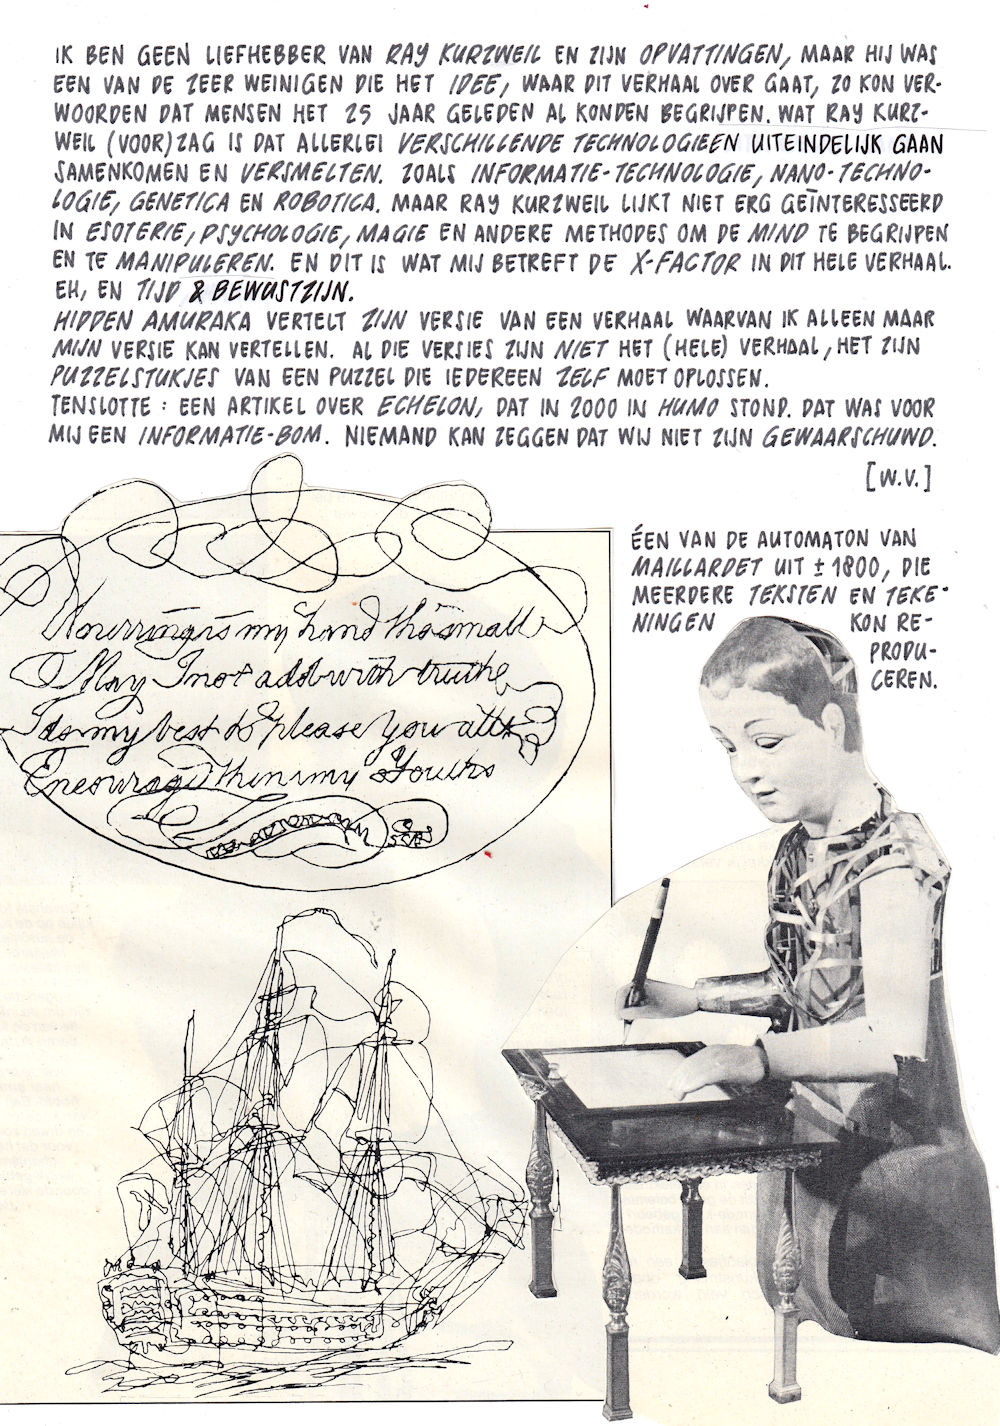 IK BEN GEEN LIEFHEBBER VAN RAY KURZWEIL EN ZIJN OPVATTINGEN, MAAR HIJ WAS
EEN VAN DE ZEER WEINIGEN DIE HET IDEE, WAAR DIT VERHAAL OVER GAAT, ZO KON VER-
WOORDEN DAT MENSEN HET 25 JAAR GELEDEN AL KONDEN BEGRIJPEN. WAT RAY KURZ-
WEIL (VOOR)ZAG IS DAT ALLERLEI VERSCHILLENDE TECHNOLOGIEEN UITEINDELIJK GAAN
SAMENKOMEN EN VERSMELTEN. ZOALS INFORMATIE-TECHNOLOGIE, NANO-TECHNO-
LOGIE, GENETICA EN ROBOTICA. MAAR RAY KURZWEIL LIJKT NIET ERG GEÏNTERESSEERD
IN ESOTERIE, PSYCHOLOGIE, MAGIE EN ANDERE METHODES OM DE MIND TE BEGRIJPEN
EN TE MANIPULEREN. EN DIT IS WAT MIJ BETREFT DE X-FACTOR IN DIT HELE VERHAAL.
EH, EN TIJD & BEWUSTZIJN.
HIDDEN AMURAKA VERTELT ZIJN VERSIE VAN EEN VERHAAL WAARVAN IK ALLEEN MAAR
MIJN VERSIE KAN VERTELLEN. AL DIE VERSIES ZIJN NIET HET (HELE) VERHAAL, HET ZIJN
PUZZELSTUKJES VAN EEN PUZZEL DIE IEDEREEN ZELF MOET OPLOSSEN.
TENSLOTTE: EEN ARTIKEL OVER ECHELON, DAT IN 2000 IN HUMO STOND. DAT WAS VOOR
MIJ EEN INFORMATIE-BOM. NIEMAND KAN ZEGGEN DAT WIJ NIET ZIJN GEWAARSCHUWD.
[W.V.]
ÉEN VAN DE AUTOMATON VAN
MAILLARDET UIT ± 1800, DIE
MEERDERE TEKSTEN EN TEKE-
NINGEN KON RE-
PRODU-
CEREN.
is my hand tho small
I May I not add with truth
I do my best to please you all
Encourage then my Youths